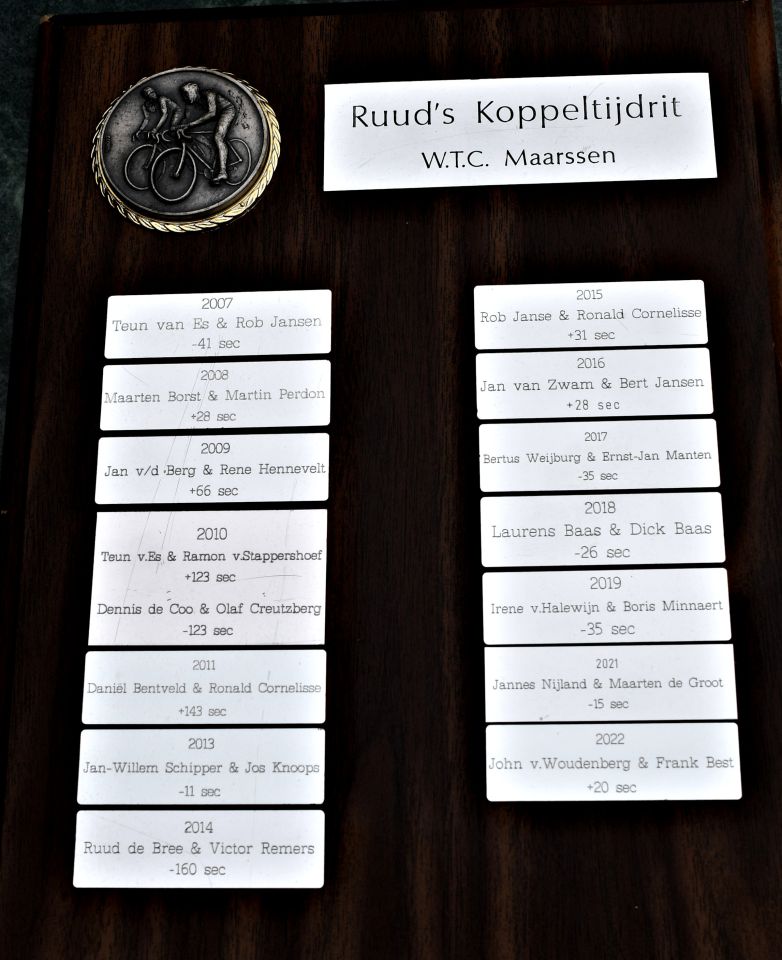 Ruud's Koppeltijdrit
W.T.C. Maarssen
2007
Teun van Es & Rob Jansen
-41 sec
2008
Maarten Borst & Martin Perdon
+28 sec
2009
Jan v/d Berg & Rene Hennevelt
+66 sec
2010
Teun v.Es & Ramon v.Stappershoef
+123 sec
Dennis de Coo & Olaf Creutzberg
-123 sec
2011
Daniël Bentveld & Ronald Cornelisse
+143 sec
2013
Jan-Willem Schipper & Jos Knoops
-11 sec
2014
Ruud de Bree & Victor Remers
-160 sec
2015
Rob Janse & Ronald Cornelisse
+31 sec
2016
Jan van Zwam & Bert Jansen
+28 sec
2017
Bertus Weijburg & Ernst-Jan Manten
-35 sec
2018
Laurens Baas & Dick Baas
-26 sec
2019
Irene v.Halewijn & Boris Minnaert
-35 sec
2021
Jannes Nijland & Maarten de Groot
-15 sec
2022
John v.Woudenberg & Frank Best
+20 sec